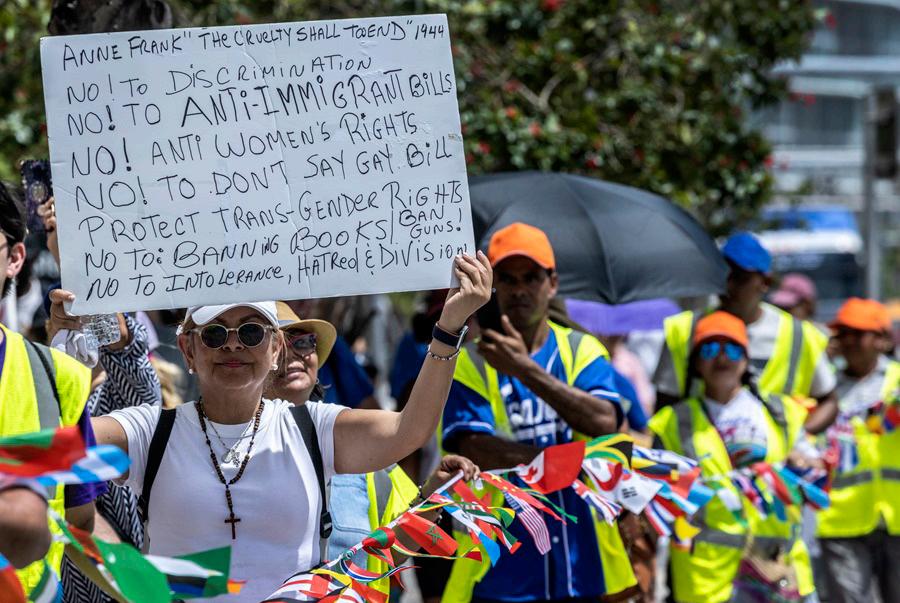 ANNE FRANK" THE CRUELTY SHALL TOO END" 1944
NO! TO DISCRIMINATION
NO! TO ANTI-IMMIGRANT BILLS
NO! ANTI WOMEN'S RIGHTS
NO! TO DON'T SAY GAY. BILL
PROTECT TRANS-GENDER RIGHTS
NO TO: BANNING BOOKS! BAN GUNS!
NO TO INTOLERANCE, HATRED & DIVISION